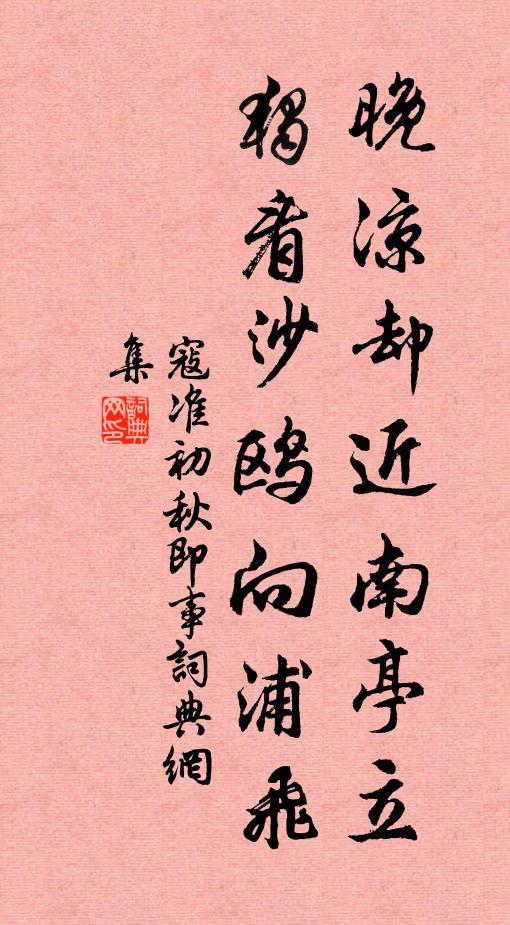 晚凉却近南亭立
独看沙鸥向浦飛
寇准初秋即事詞典網
集
詞典
网印